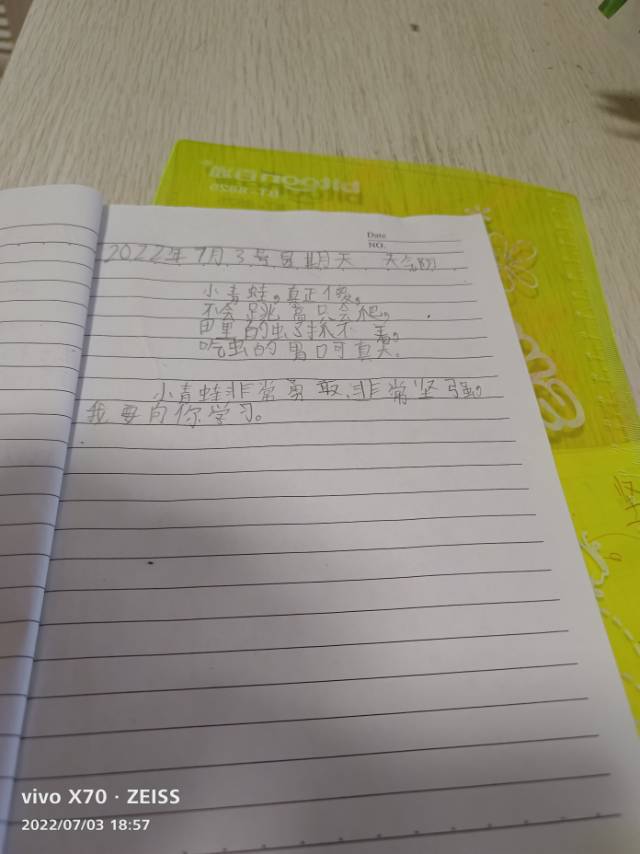 Date
NO.
2022年7月3号星期天 天气阴
小青蛙,真正傻,
不会跳高只会爬,
田里的虫子抓不着,
吃虫的胃口可真大.
小青蛙非常勇敢、非常坚强,
我要向你学习。
vivo X70 · ZEISS
2022/07/03 18:57